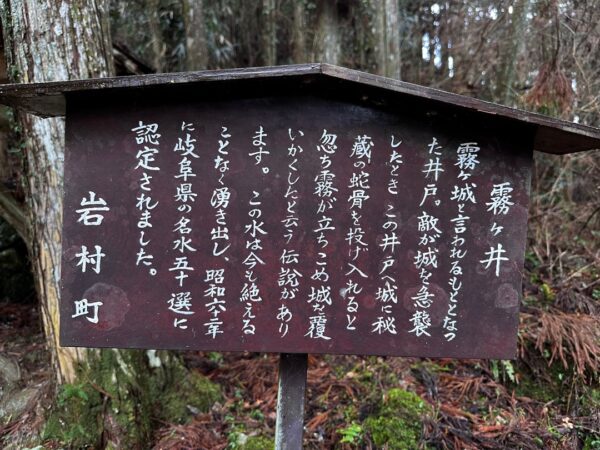 霧ヶ井
霧ヶ城と言われるもととなっ
た井戸。敵が城を急襲
したとき この井戸へ城に秘
蔵の蛇骨を投げ入れると
忽ち霧が立ちこめ城を覆
いかくしたと云う伝説があり
ます。この水は今も絶える
ことなく湧き出し、昭和六十一年
に岐阜県の名水五十選に
認定されました。
岩村町